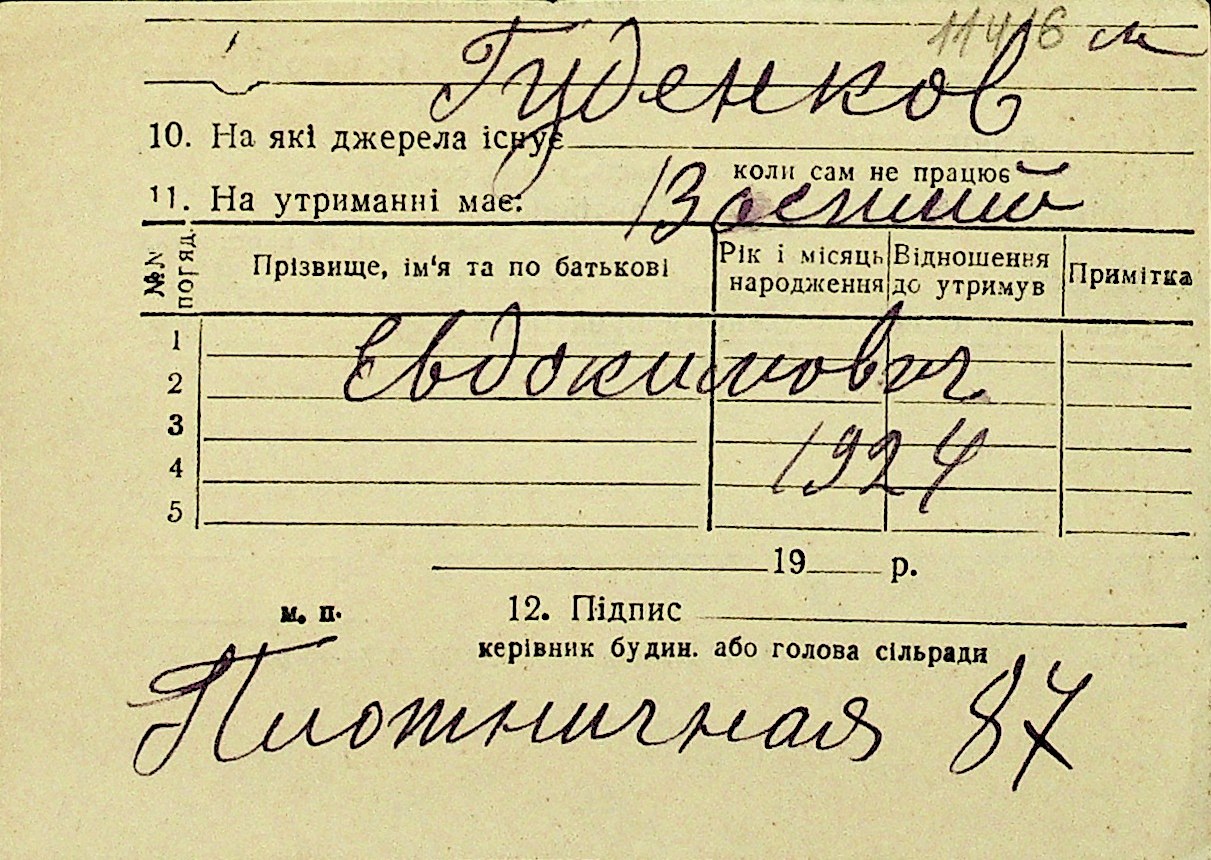 11416 м
Гуденков
10. На які джерела існує
коли сам не працює
11. На утриманні має:
Василий
№№ погляд.
Прізвище, ім'я та по батькові
Рік і місяць народження
Відношення до утримув
Примітка
1
Евдокимович
2
3
1924
4
5
19 р.
м. п.
12. Підпис
керівник будин. або голова сільради
Плотничная 87